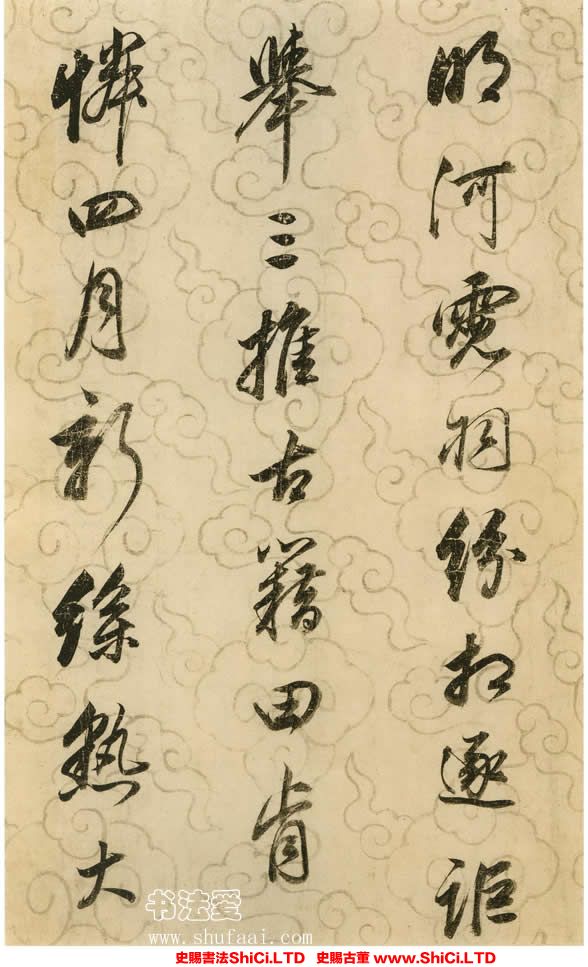 明河霓紛相逐詎
舉三推古籍田肯
憐四月新絲熟大
书法爱
www.shufaai.com
史賜書法ShiCi.LTD 史賜古董 www.ShiCi.LTD